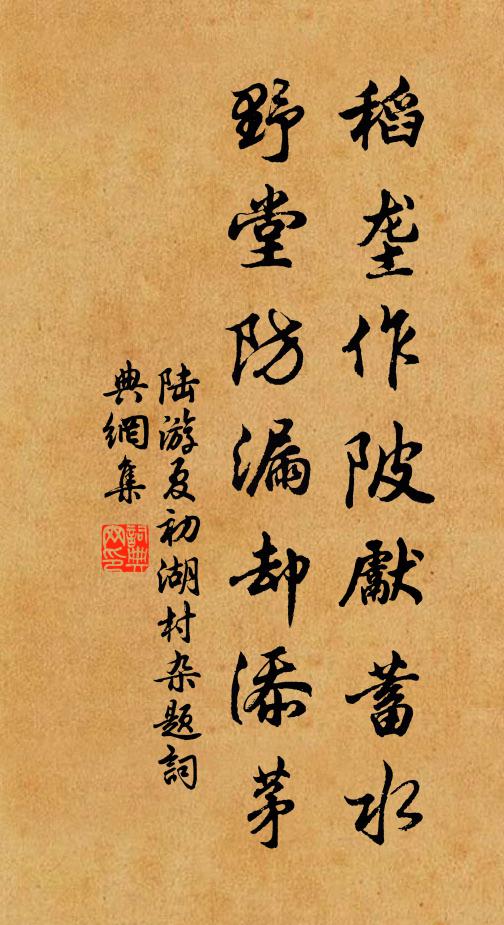 稻垄作陂獻蓄水
野堂防漏却添茅
陆游夏初湖村杂题詞
典網集
詞典网印